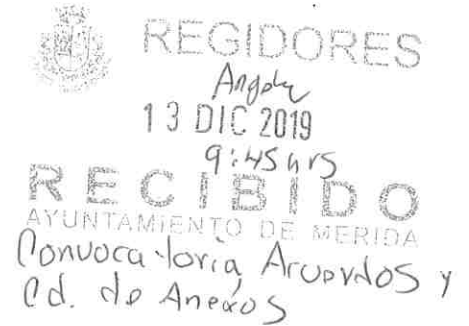 REGIDORES
Angely
13 DIC 2019
9:45 hrs
RECIBIDO
AYUNTAMIENTO DE MERIDA
Convocatoria, Acuerdos y
Cd. de Anexos